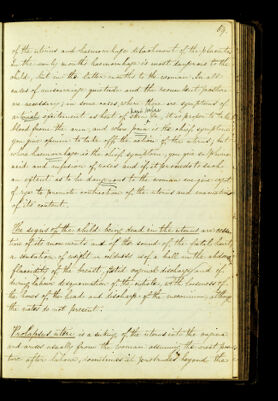 69.
of the uterus and haemorrhage detachment of the placenta
In the early months haemorrhage is most dangerous to the
child, but in the latter months to the woman. In all
cases of miscarriage quietude and the recumbent position
are necessary; in some cases where there are symptoms of
arterial excitement as heat of skin &c, it is proper to take
blood from the arm, and when pain is the chief symptom
you give opium to take off the action of the uterus, but
when haemorrhage is the chief symptom, you give sulphuric
acid and infusion of roses and if it proceeds to such
an extent as to be dangerous to the woman we give ergot
of rye to promote contraction of the uterus and
of its content.
The signs of the child being dead in the uterus are
of its movements and of the sound of the foetal heart,
a sensation of weight or coldness as if a ball in the
flaccidity of the breast, foetid vaginal discharge and if
during labour desquamation of the cuticle, with looseness of
the bones of the head and discharge of the meconium, although
the nates do not present.
Prolapsus uteri is a sinking of the uterus into the vagina
and arises usually from the woman assuming the erect
after labour, sometimes it protrudes beyond the